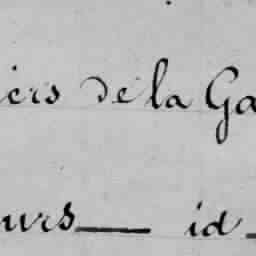 iers de la Ga
urs — id —